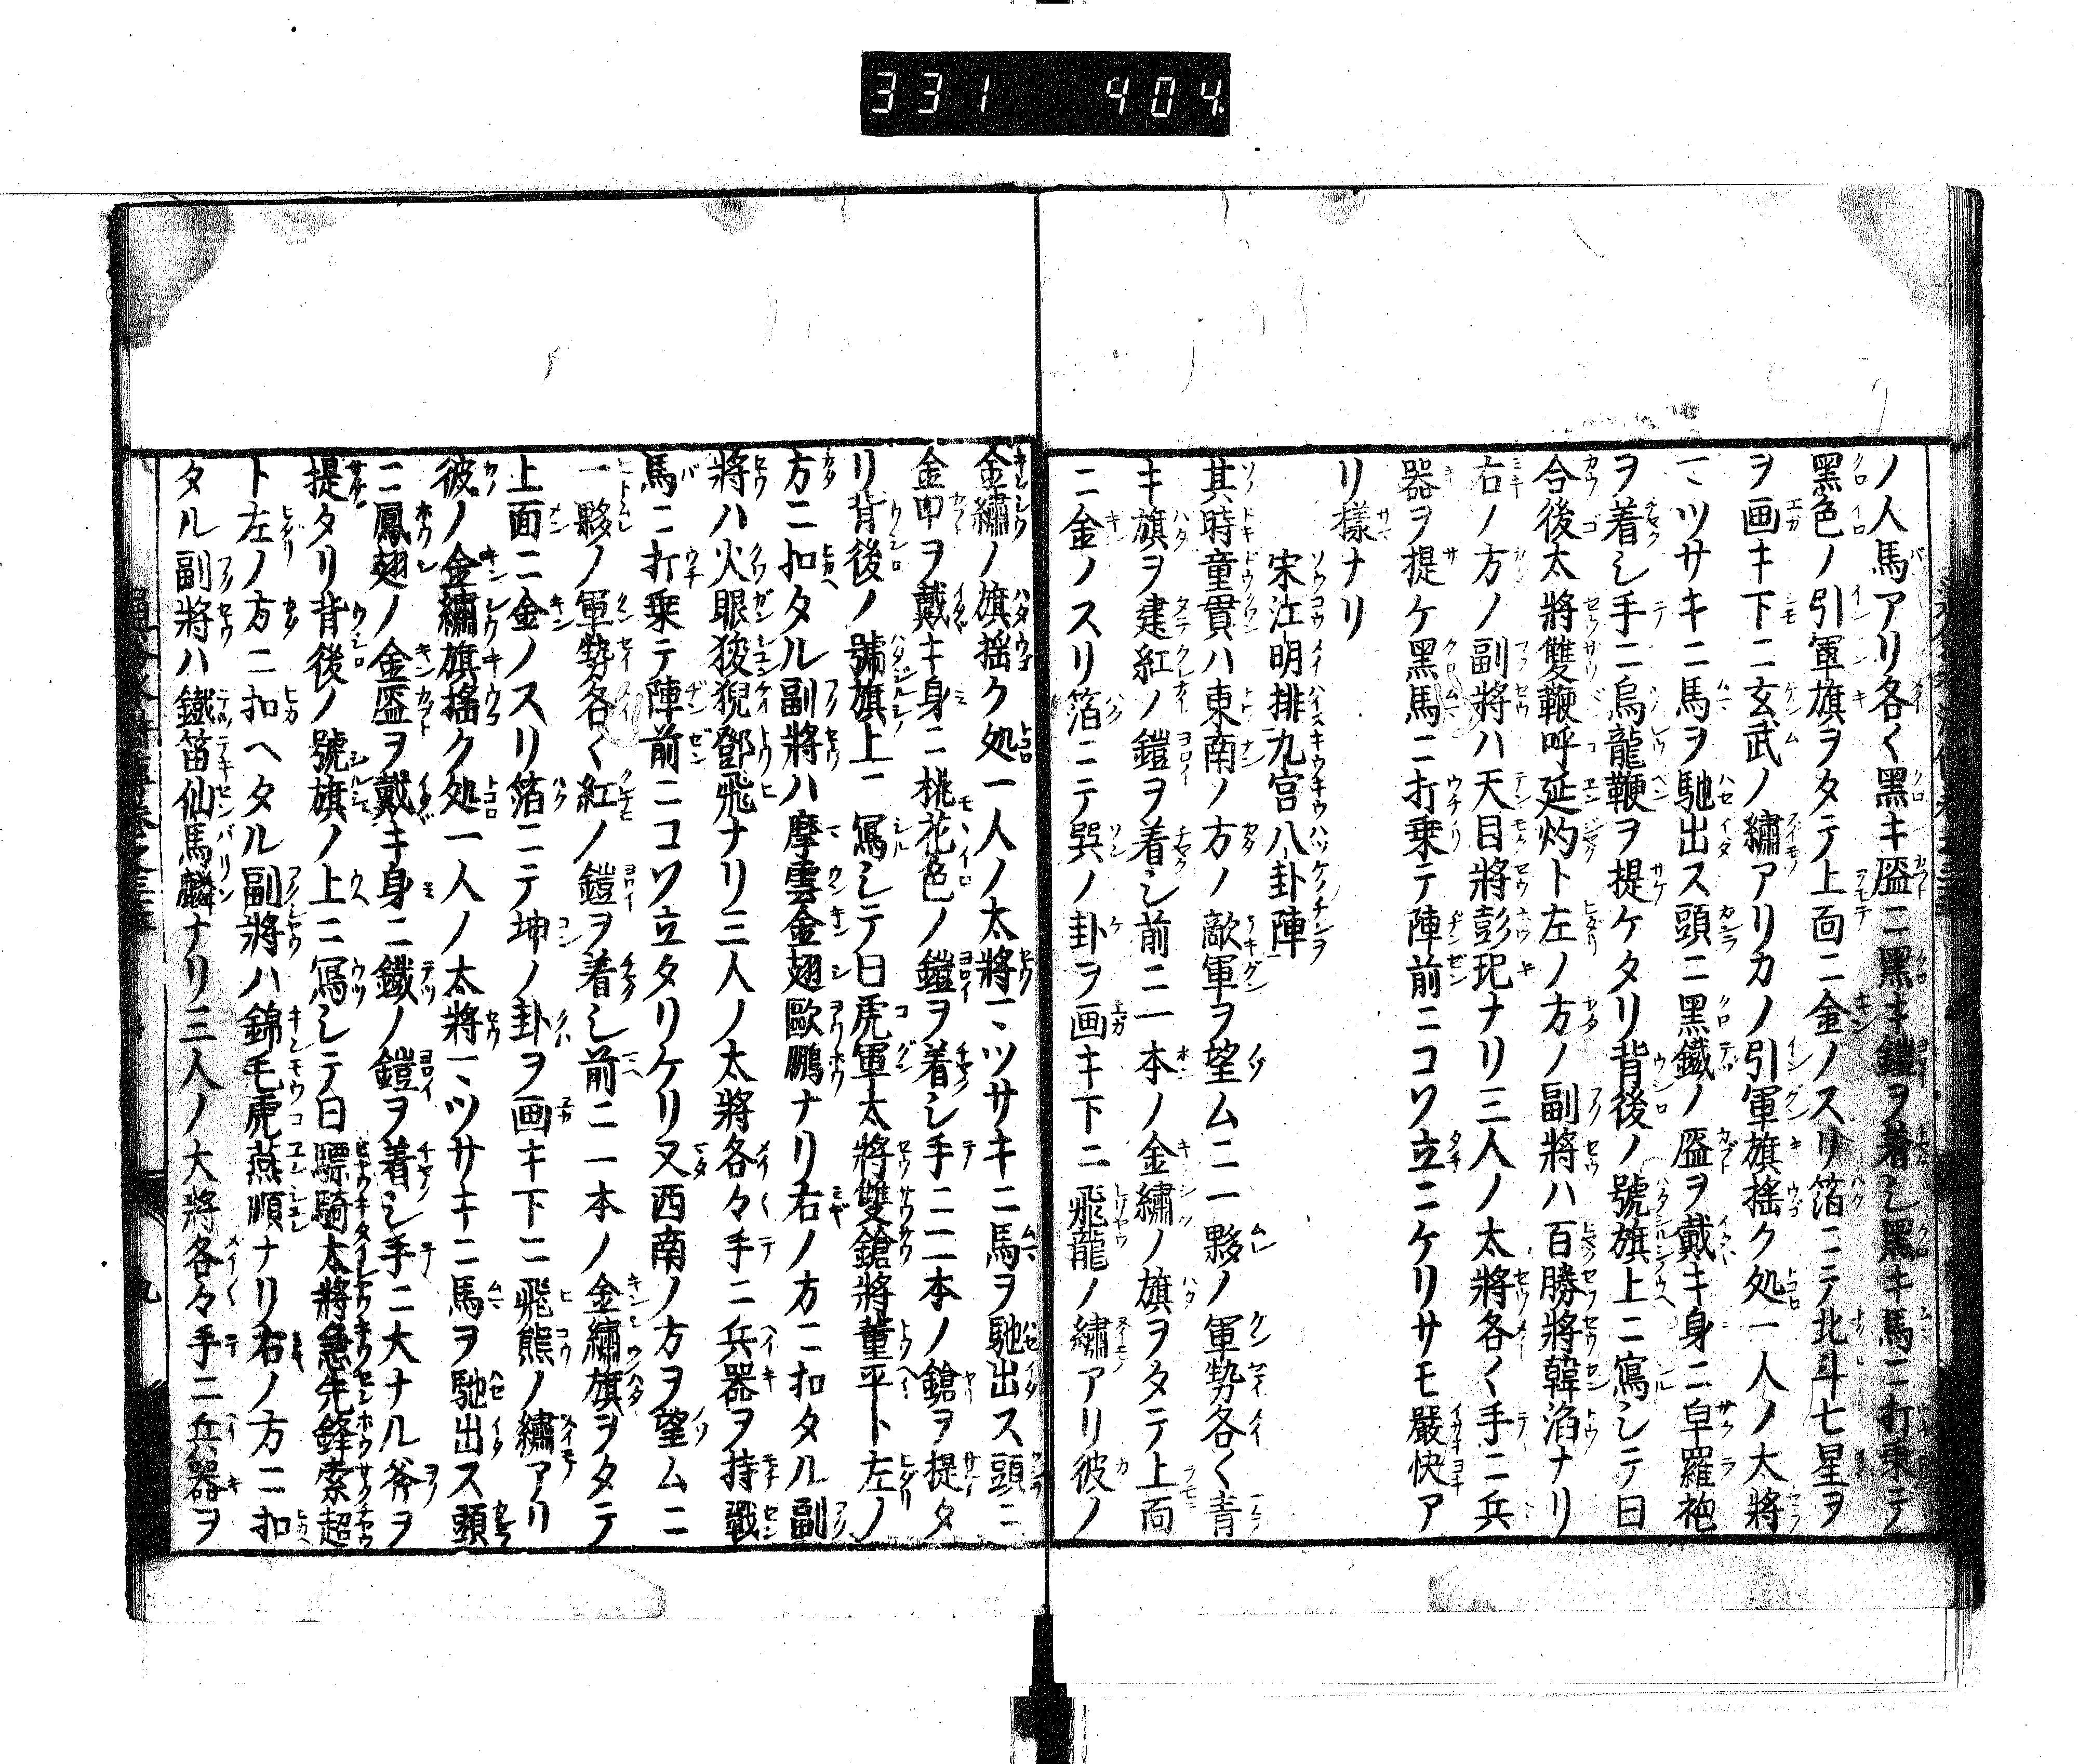 331 404
ノ人馬アリ各〱黒キ盔ニ黒キ鎧ヲ着シ黒キ馬ニ打乗テ
黒色ノ引軍旗ヲタテ上面ニ金ノスリ箔ニテ北斗七星ヲ
ヲ画キ下ニ玄武ノ繡アリカノ引軍旗揺ク処一人ノ太將
一ツサキニ馬ヲ馳出ス頭ニ黒鐵ノ盔ヲ戴キ身ニ皁羅袍
ヲ着シ手ニ烏龍鞭ヲ提ケタリ背後ノ號旗上ニ寫シテ曰
合後太將雙鞭呼延灼ト左ノ方ノ副將ハ百勝將韓滔ナリ
右ノ方ノ副將ハ天目將彭玘ナリ三人ノ太將各〱手ニ兵
器ヲ提ケ黒馬ニ打乗テ陣前ニコソ立ニケリサモ嚴快ア
リ樣ナリ
宋江明排九宮八卦陣
其時童貫ハ東南ノ方ノ敵軍ヲ望ムニ一夥ノ軍勢各〱青
キ旗ヲ建紅ノ鎧ヲ着シ前ニ一本ノ金繡ノ旗ヲタテ上面
ニ金ノスリ箔ニテ巽ノ卦ヲ画キ下ニ飛龍ノ繡アリ彼ノ
金繡ノ旗揺ク処一人ノ太將一ツサキニ馬ヲ馳出ス頭ニ
金甲ヲ戴キ身ニ桃花色ノ鎧ヲ着シ手ニ二本ノ鎗ヲ提タ
リ背後ノ號旗上ニ寫シテ曰虎軍太將雙鎗將董平ト左ノ
方ニ扣タル副將ハ摩雲金翅歐鵬ナリ右ノ方ニ扣タル副
將ハ火眼狻猊鄧飛ナリ三人ノ太將各々手ニ兵器ヲ持戰
馬ニ打乗テ陣前ニコソ立タリケリ又西南ノ方ヲ望ムニ
一夥ノ軍勢各〱紅ノ鎧ヲ着シ前ニ一本ノ金繡旗ヲタテ
上面ニ金ノスリ箔ニテ坤ノ卦ヲ画キ下ニ飛熊ノ繡アリ
彼ノ金繡旗揺ク処一人ノ太將一ツサキニ馬ヲ馳出ス頭
ニ鳳翅ノ金盔ヲ戴キ身ニ鐵ノ鎧ヲ着シ手ニ大ナル斧ヲ
提タリ背後ノ號旗ノ上ニ寫シテ曰驃騎太將急先鋒索超
ト左ノ方ニ扣ヘタル副將ハ錦毛虎燕順ナリ右ノ方ニ扣
タル副將ハ鐵笛仙馬麟ナリ三人ノ大將各々手ニ兵器ヲ
九